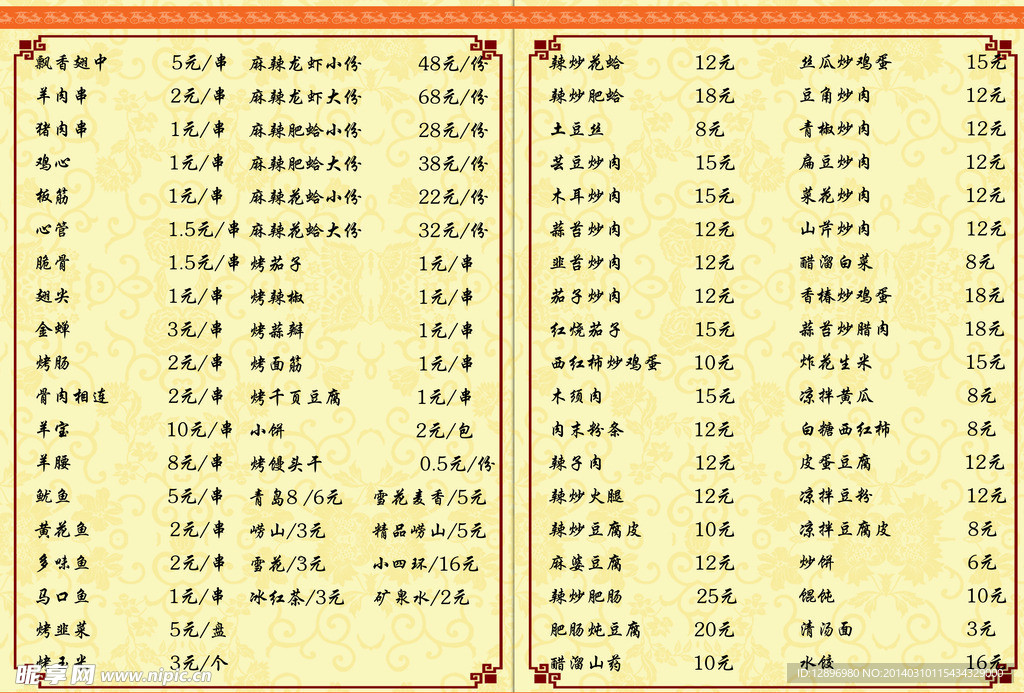 飘香翅中 5元/串
羊肉串 2元/串
猪肉串 1元/串
鸡心 1元/串
板筋 1元/串
心管 1.5元/串
脆骨 1.5元/串
翅尖 1元/串
金蝉 3元/串
烤肠 2元/串
骨肉相连 2元/串
羊宝 10元/串
羊腰 8元/串
鱿鱼 5元/串
黄花鱼 2元/串
多味鱼 2元/串
马口鱼 1元/串
烤韭菜 5元/盘
烤玉米 3元/个
麻辣龙虾小份 48元/份
麻辣龙虾大份 68元/份
麻辣肥蛤小份 28元/份
麻辣肥蛤大份 38元/份
麻辣花蛤小份 22元/份
麻辣花蛤大份 32元/份
烤茄子 1元/串
烤辣椒 1元/串
烤蒜辩 1元/串
烤面筋 1元/串
烤千页豆腐 1元/串
小饼 2元/包
烤馒头干 0.5元/份
青岛8/6元 雪花麦香/5元
崂山/3元 精品崂山/5元
雪花/3元 小四环/16元
冰红茶/3元 矿泉水/2元
辣炒花蛤 12元
辣炒肥蛤 18元
土豆丝 8元
芸豆炒肉 15元
木耳炒肉 15元
蒜苔炒肉 12元
韭苔炒肉 12元
茄子炒肉 12元
红烧茄子 15元
西红柿炒鸡蛋 10元
木须肉 15元
肉末粉条 12元
辣子肉 12元
辣炒火腿 12元
辣炒豆腐皮 10元
麻婆豆腐 12元
辣炒肥肠 25元
肥肠炖豆腐 20元
醋溜山药 10元
丝瓜炒鸡蛋 15元
豆角炒肉 12元
青椒炒肉 12元
扁豆炒肉 12元
菜花炒肉 12元
山芹炒肉 12元
醋溜白菜 8元
香椿炒鸡蛋 18元
蒜苔炒腊肉 18元
炸花生米 15元
凉拌黄瓜 8元
白糖西红柿 8元
皮蛋豆腐 12元
凉拌豆粉 12元
凉拌豆腐皮 8元
炒饼 6元
馄饨 10元
清汤面 3元
水饺 16元
昵享网 www.nipic.cn
ID:12896980 NO:20140310115434329000